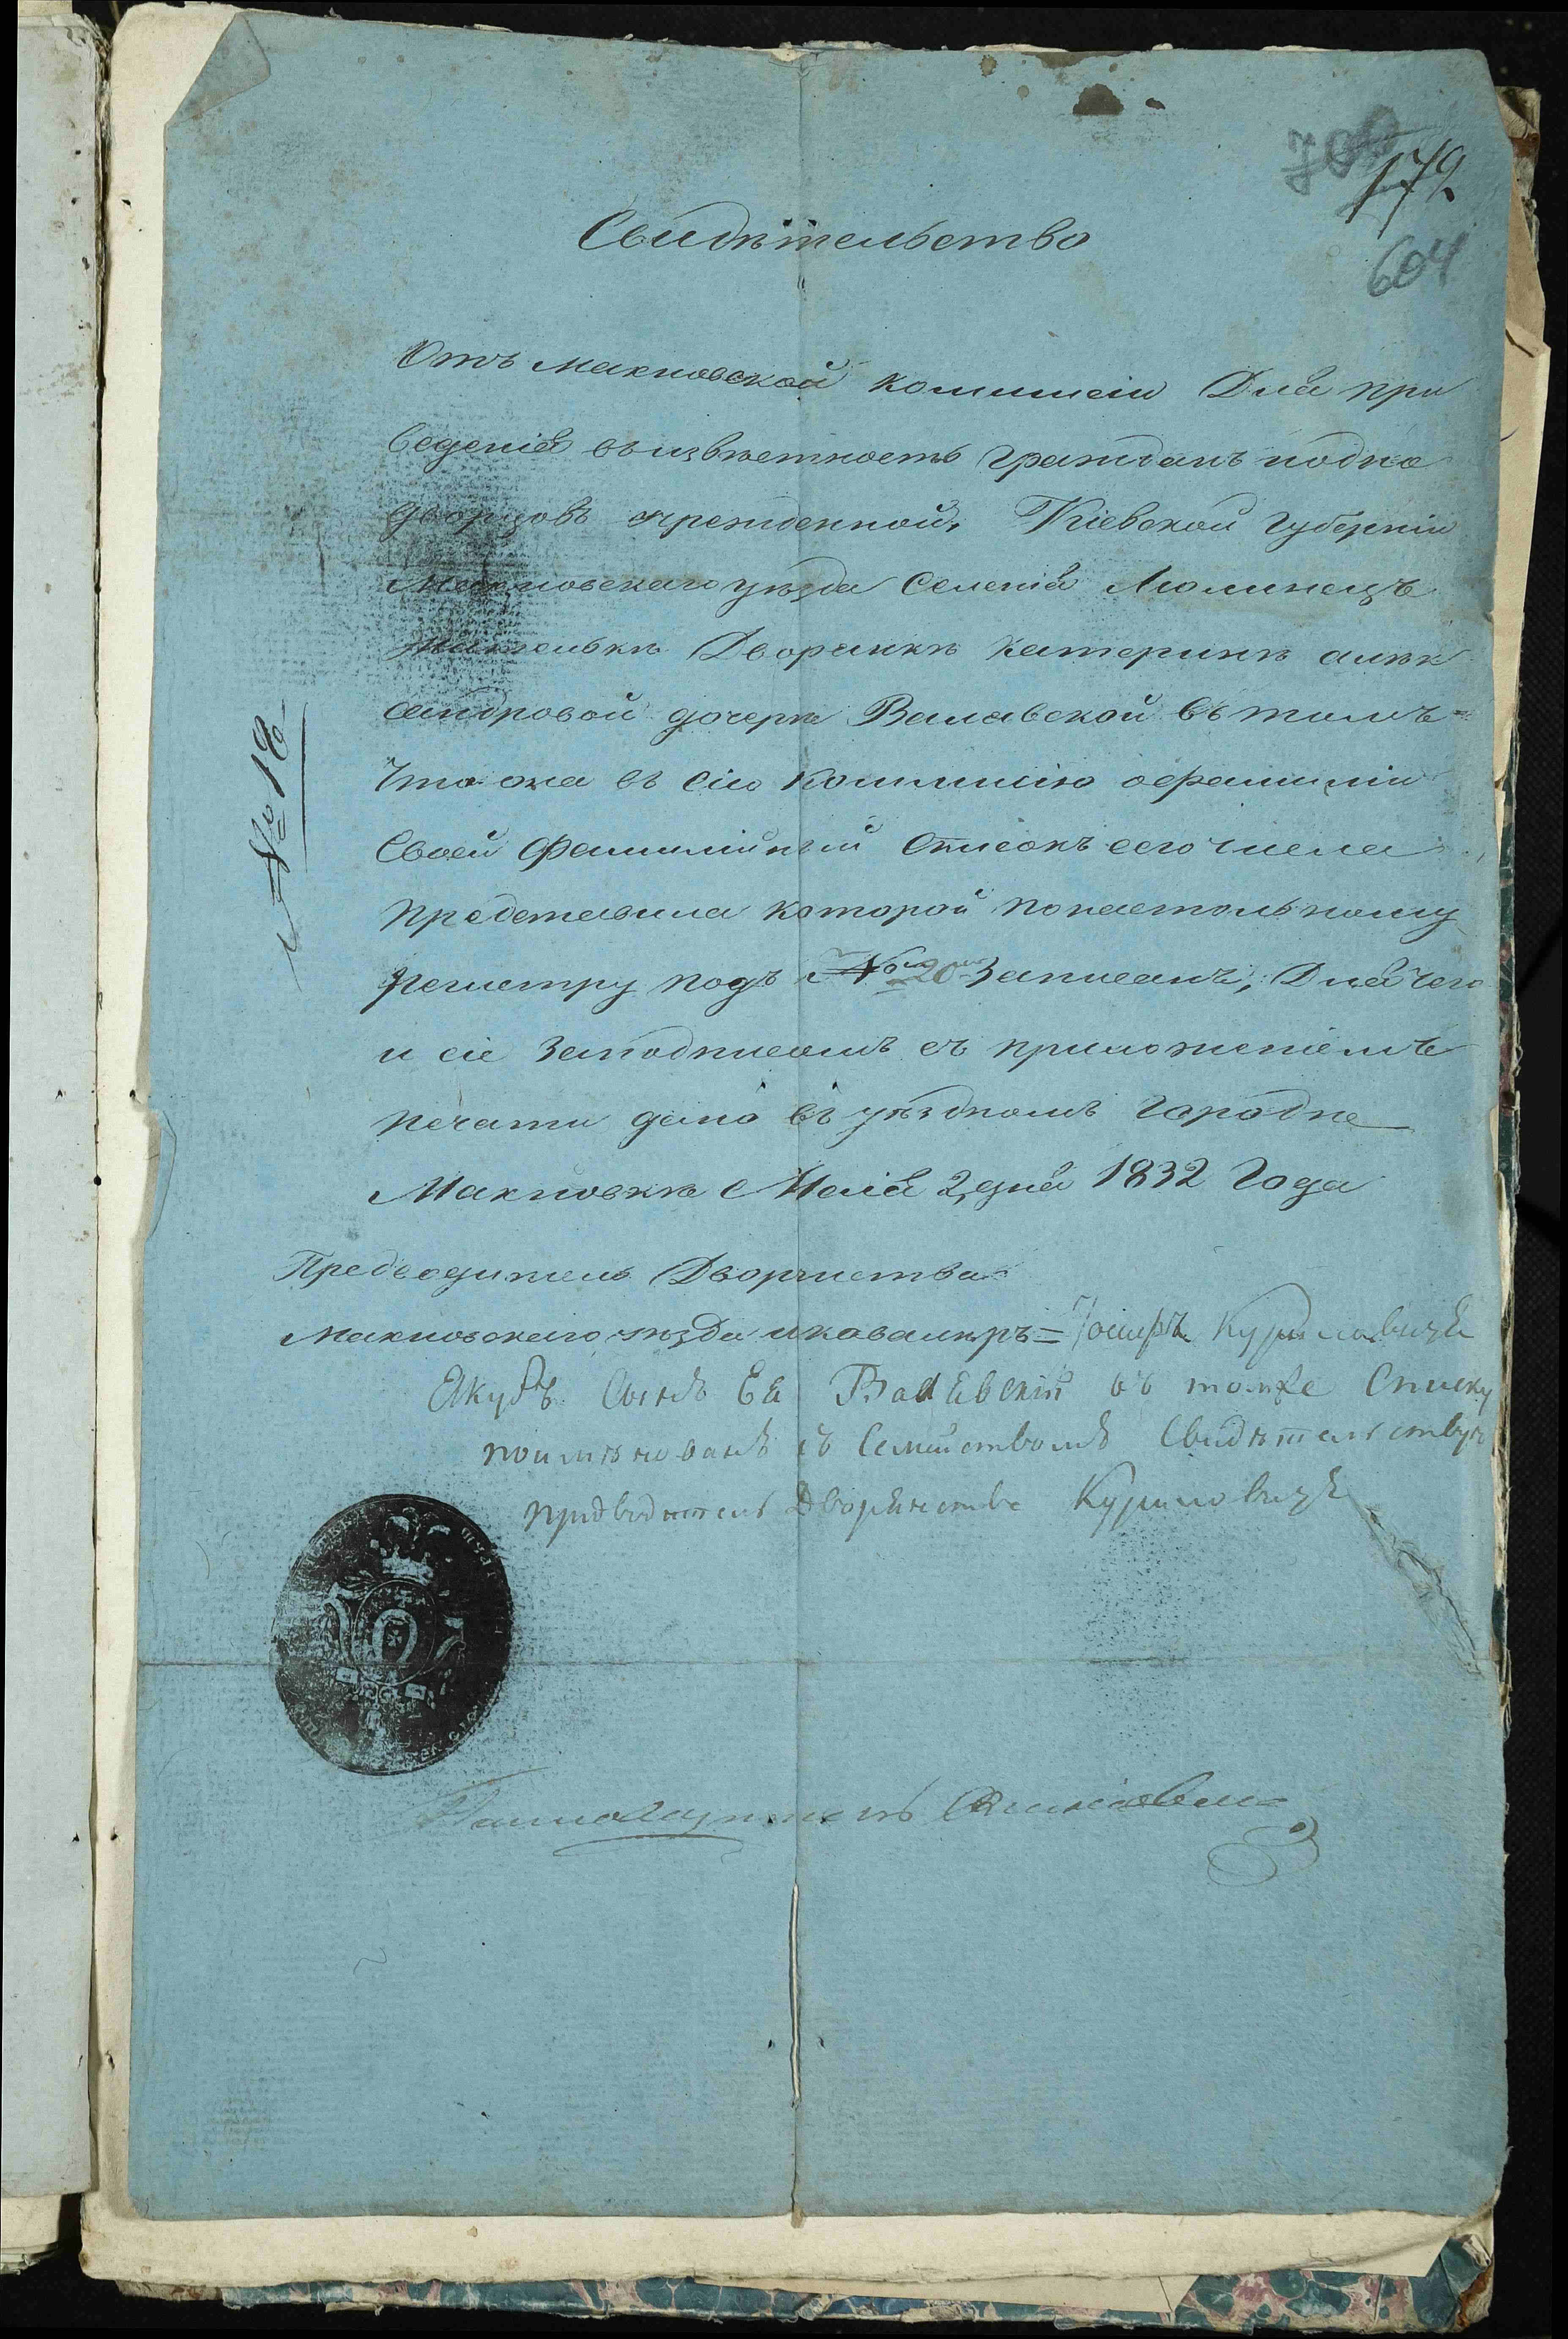 700
179
604
Свидѣтельство
№ 18
Отъ махновской коммисіи Для при
веденія въ извѣстность гражданъ иодно
дворцовъ учрежденной, Кіевской губерніи
Махновскаго уѣзда Селенія Люлинецъ
жительки Дворянкѣ Катеринѣ алек
сандровой дочерѣ Валевской въ томъ=
что она въ сію Коммисію офамиліи
Своей Фамилійный Списокъ сего числа
представила которой понастольному
регистру подъ № 20 Записанъ, Для чего
и сіе Заподписомъ съ приложеніемъ
печати дано въ уѣздномъ городке
Махновкѣ Маія 2 дня 1832 Года
Предводитель Дворянства
Махновскаго уѣзда икавалеръ = Куриловичъ
Якубъ Сынъ Ея Валевскій въ томже Списку
поименованъ съ Семействомъ Свидѣтельствую
Предводитель Дворянства Куриловичъ